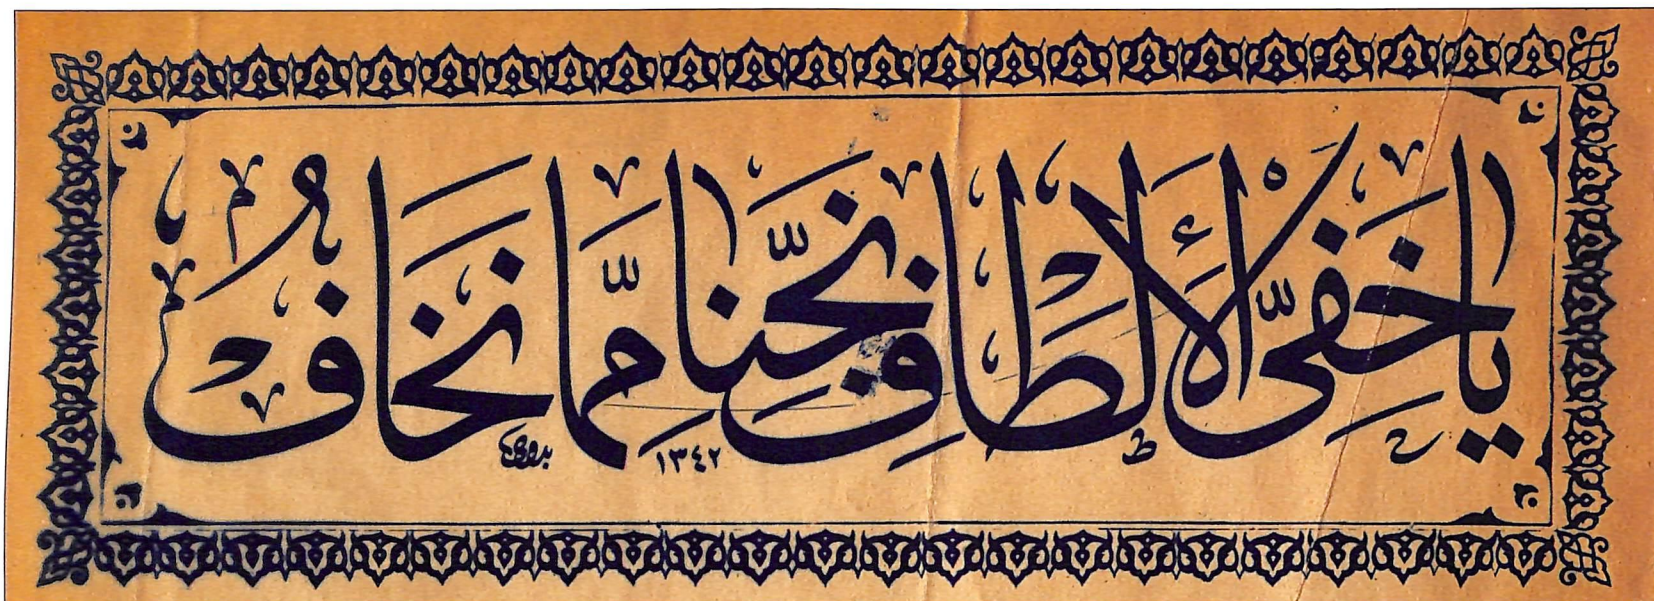 يَا خَفِيَّ الْأَلْطَافِ نَجِّنَا مِمَّا نَخَافُ
١٣٤٢